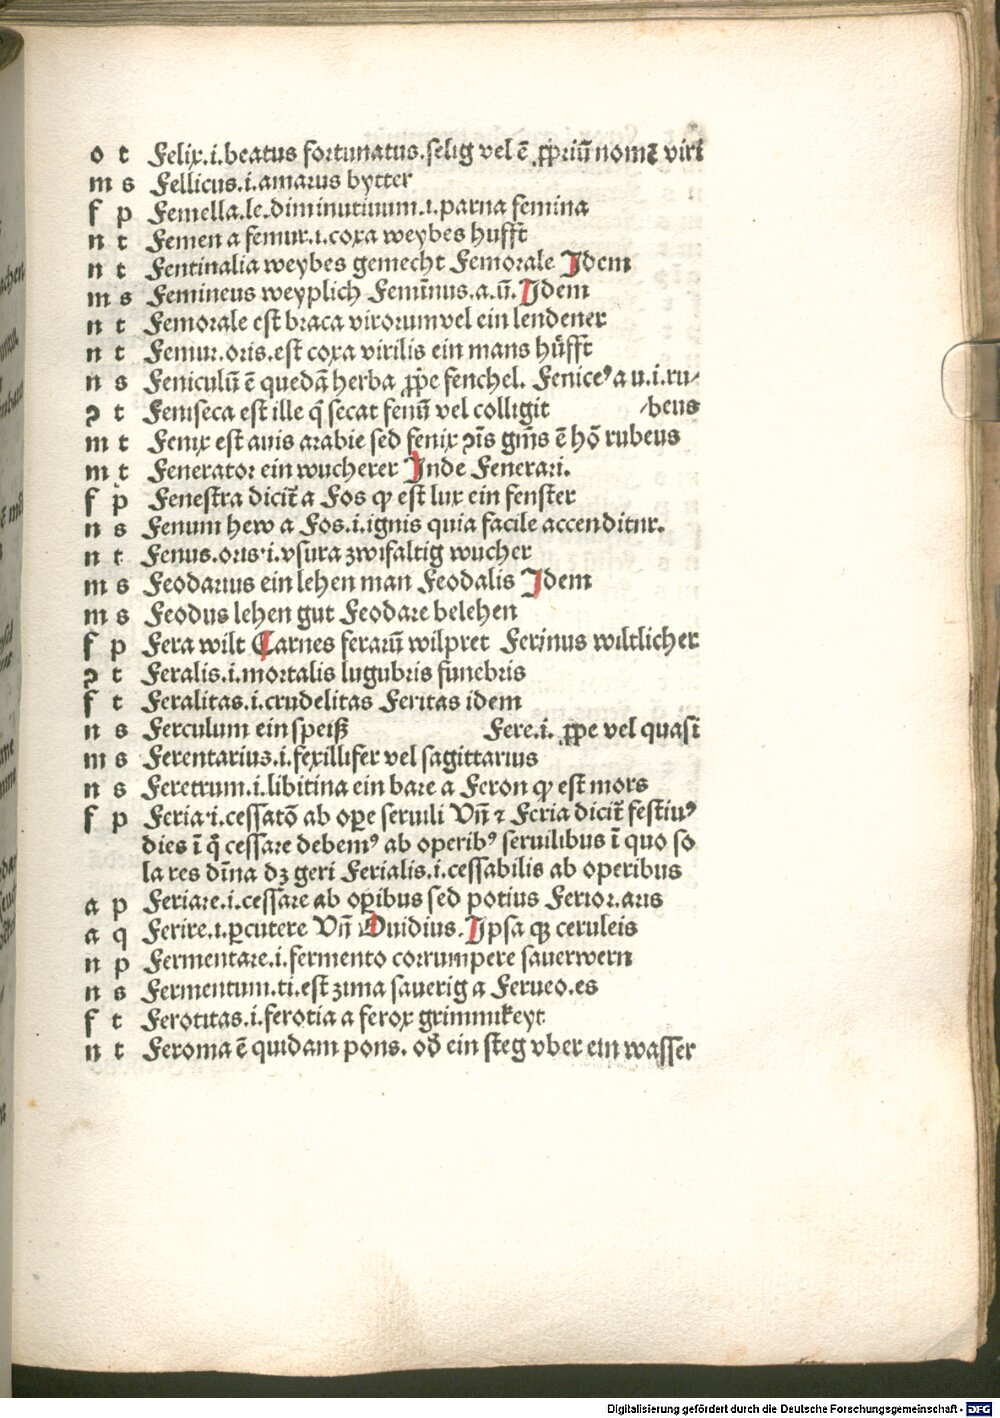 o t Felix.i.beatus fortunatus.selig vel ē ꝓpriū nomē viri
m s Fellicus.i.amarus bytter
f p Femella.le.diminutiuum.i.parua femina
n t Femen a femur.i.coxa weybes hufft
n t Fentinalia weybes gemecht Femorale Idem
m s Femineus weyplich Femīnus.a.ū.Idem
n t Femorale est braca virorum vel ein lendener
n t Femur.oris.est coxa virilis ein mans hüfft
n s Feniculū ē quedā herba ꝓpe fenchel. Feniceꝰ a u.i.ru-
ꝛ t Feniseca est ille q̄ secat fenū vel colligit /beus
m t Fenix est auis arabie sed fenix ꝯīs gn̄is ē hō rubeus
m t Fenerator ein wucherer Inde Fenerari.
f p Fenestra dicit̄ a Fos ꝙ est lux ein fenster
n s Fenum hew a Fos.i.ignis quia facile accenditur.
n t Fenus.oris.i.vsura zwifaltig wucher
m s Feodarius ein lehen man Feodalis Idem
m s Feodus lehen gut Feodare belehen
f p Fera wilt Carnes ferarū wilpret Ferinus wiltlicher
ꝛ t Feralis.i.mortalis lugubris funebris
f t Feralitas.i.crudelitas Feritas idem
n s Ferculum ein speiß Fere.i. ꝓpe vel quasi
m s Ferentarius.i.fexillifer vel sagittarius
n s Feretrum.i.libitina ein bare a Feron ꝙ est mors
f p Feria.i.cessatō ab oꝑe seruili Vn̄ ⁊ Feria dicit̄ festiuꝰ
dies ī q̄ cessare debemꝰ ab operibꝰ seruilibus ī quo so
la res dīna dꝫ geri Ferialis.i.cessabilis ab operibus
a p Feriare.i.cessare ab oꝑibus sed potius Ferior.aris
a q Ferire.i.ꝑcutere Vn̄ Ouidius.Ipsa qꝫ ceruleis
n p Fermentare.i.fermento corrumpere sauerwern
n s Fermentum.ti.est zima sauerig a Ferueo.es
f t Ferotitas.i.ferotia a ferox grimmikeyt
n t Feroma ē quidam pons. od̄ ein steg vber ein wasser
Digitalisierung gefördert durch die Deutsche Forschungsgemeinschaft - DFG